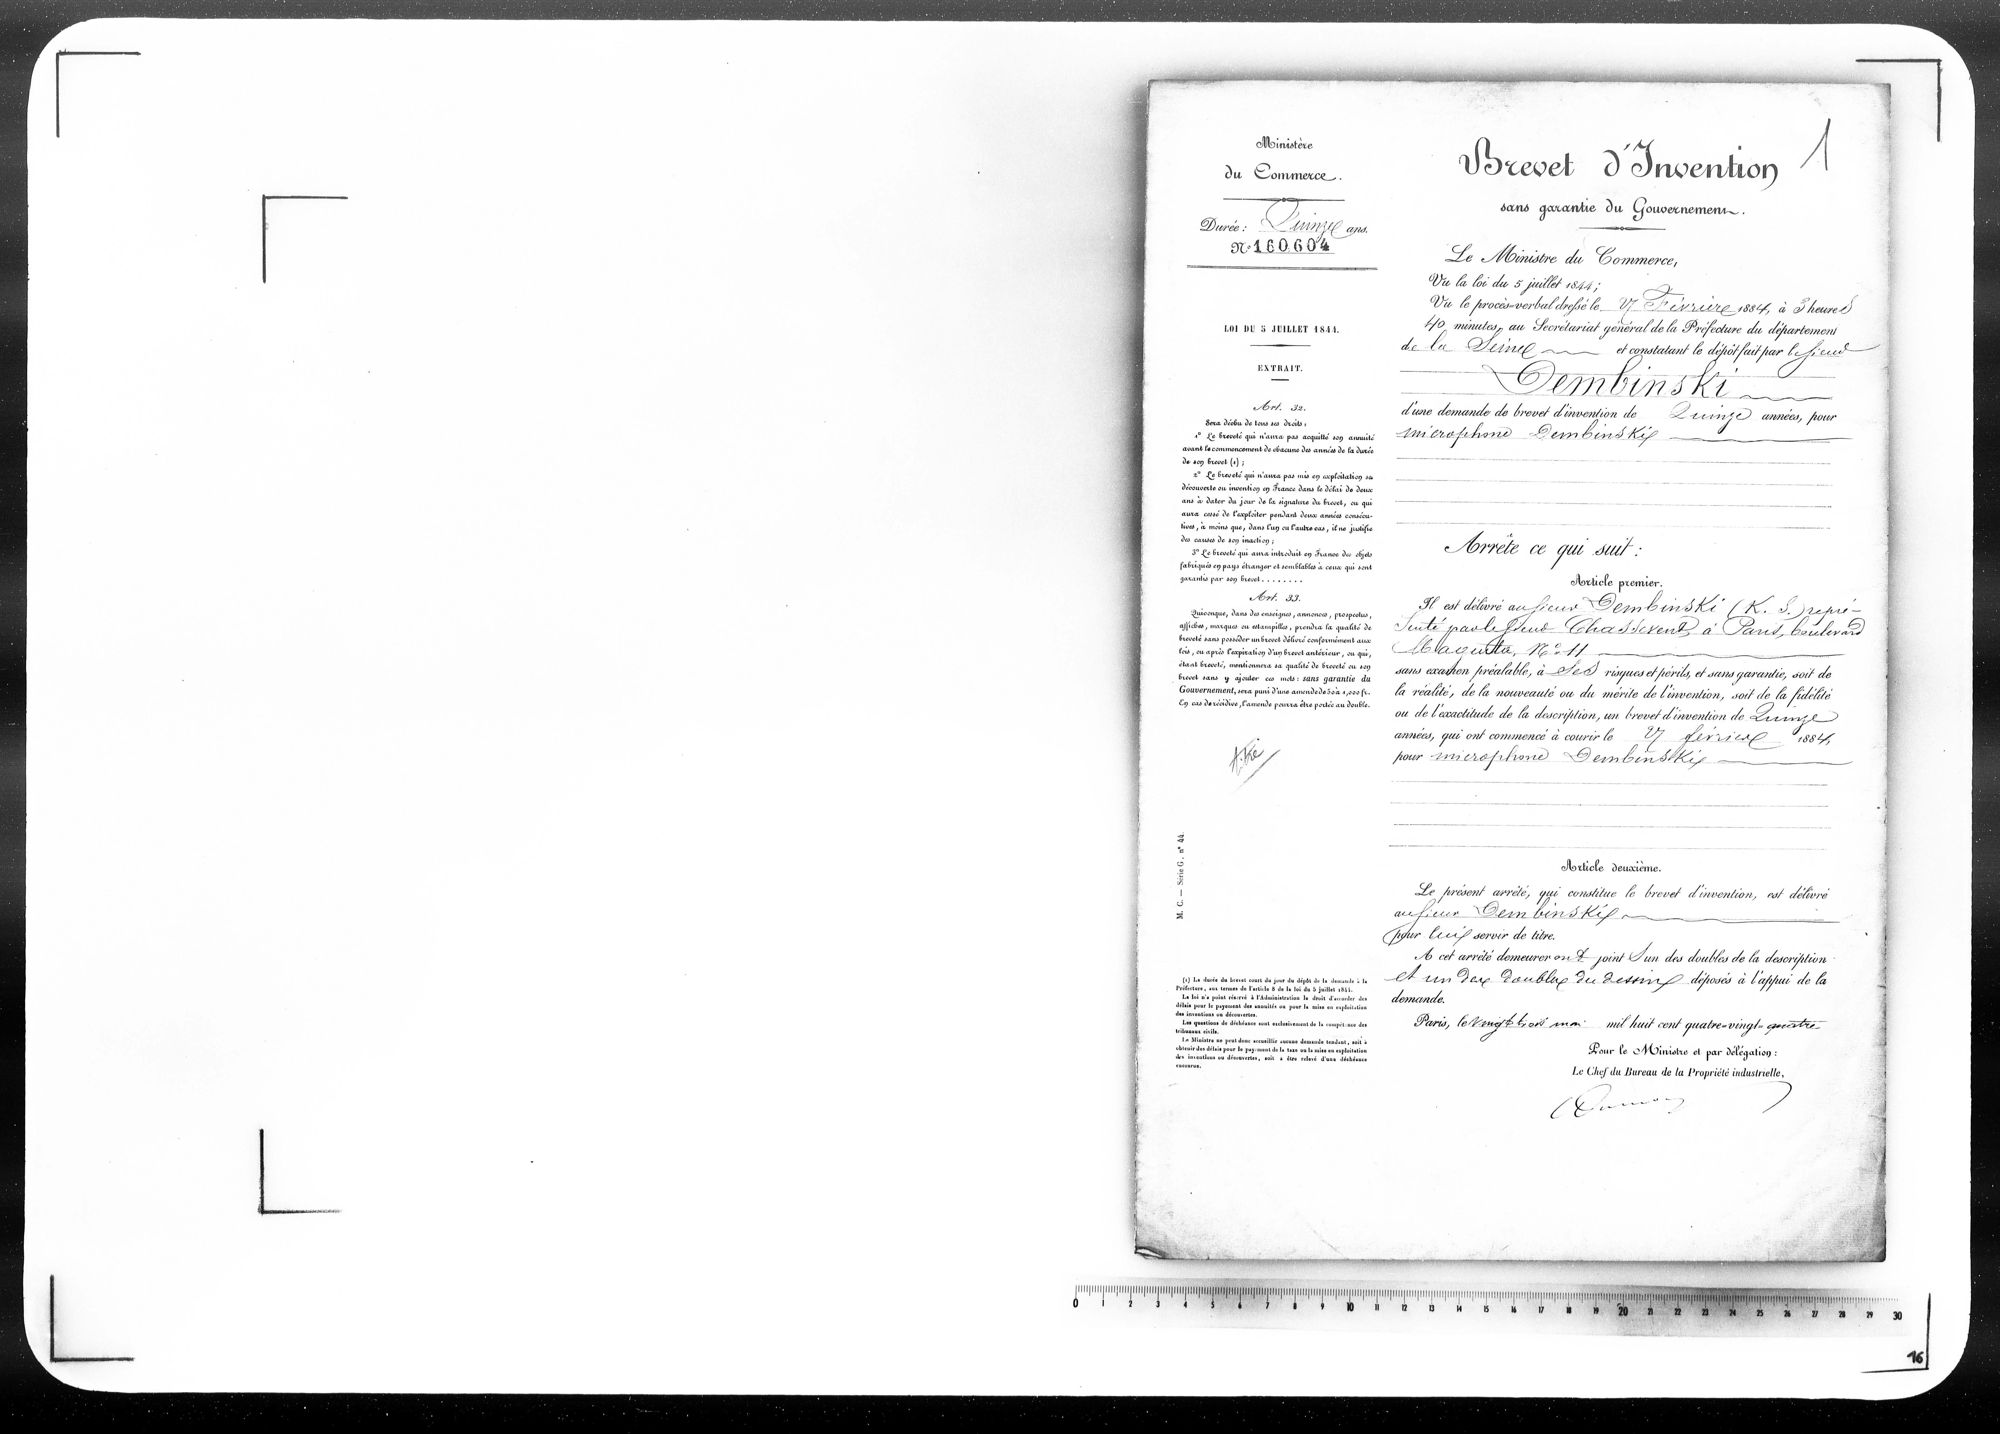 Ministère
du Commerce.
Durée: Quinze ans.
N° 160604
LOI DU 5 JUILLET 1844.
EXTRAIT.
Art. 32.
Sera déchu de tous ses droits:
1° Le breveté qui n'aura pas acquitté son annuité
avant le commencement de chacune des années de la durée
de son brevet (1);
2° Le breveté qui n'aura pas mis en exploitation sa
découverte ou invention en France dans le délai de deux
ans à dater du jour de la signature du brevet, ou qui
aura cessé de l'exploiter pendant deux années consécu-
tives, à moins que, dans l'un ou l'autre cas, il ne justifie
des causes de son inaction;
3° Le breveté qui aura introduit en France des objets
fabriqués en pays étranger et semblables à ceux qui sont
garantis par son brevet........
Art. 33.
Quiconque, dans des enseignes, annonces, prospectus,
affiches, marques ou estampilles, prendra la qualité de
breveté sans posséder un brevet délivré conformément aux
lois, ou après l'expiration d'un brevet antérieur, ou qui,
étant breveté, mentionnera sa qualité de breveté ou son
brevet sans y ajouter ces mots: sans garantie du
Gouvernement, sera puni d'une amende de 50 à 1,000 fr.
En cas de récidive, l'amende pourra être portée au double.
titre
M. C. — Série G. n° 44.
(1) La durée du brevet court du jour du dépôt de la demande à la
Préfecture, aux termes de l'article 8 de la loi du 5 juillet 1844.
La loi n'a point réservé à l'Administration le droit d'accorder des
délais pour le payement des annuités ou pour la mise en exploitation
des inventions ou découvertes.
Les questions de déchéance sont exclusivement de la compétence des
tribunaux civils.
Le Ministre ne peut donc accueillir aucune demande tendant, soit à
obtenir des délais pour le payement de la taxe ou la mise en exploitation
des inventions ou découvertes, soit à être relevé d'une déchéance
encourue.
1
Brevet d'Invention
sans garantie du Gouvernement.
Le Ministre du Commerce,
Vu la loi du 5 juillet 1844;
Vu le procès-verbal dressé le 27 Février 1884, à 3 heures
40 minutes, au Secrétariat général de la Préfecture du département
de la Seine et constatant le dépôt fait par le sieur
Dembinski
d'une demande de brevet d'invention de Quinze années, pour
microphone Dembinski
Arrête ce qui suit:
Article premier.
Il est délivré au sieur Dembinski (K. S.) repré-
senté par le sieur Chassevent, à Paris, boulevard
Magenta, N° 11
sans examen préalable, à ses risques et périls, et sans garantie, soit de
la réalité, de la nouveauté ou du mérite de l'invention, soit de la fidélité
ou de l'exactitude de la description, un brevet d'invention de Quinze
années, qui ont commencé à courir le 27 février 1884,
pour microphone Dembinski
Article deuxième.
Le présent arrêté, qui constitue le brevet d'invention, est délivré
au sieur Dembinski
pour lui servir de titre.
A cet arrêté demeureront joint s un des doubles de la description
et un des doubles du dessin déposés à l'appui de la
demande.
Paris, le vingt trois mai mil huit cent quatre-vingt-quatre
Pour le Ministre et par délégation:
Le Chef du Bureau de la Propriété industrielle,
0 1 2 3 4 5 6 7 8 9 10 11 12 13 14 15 16 17 18 19 20 21 22 23 24 25 26 27 28 29 30
16